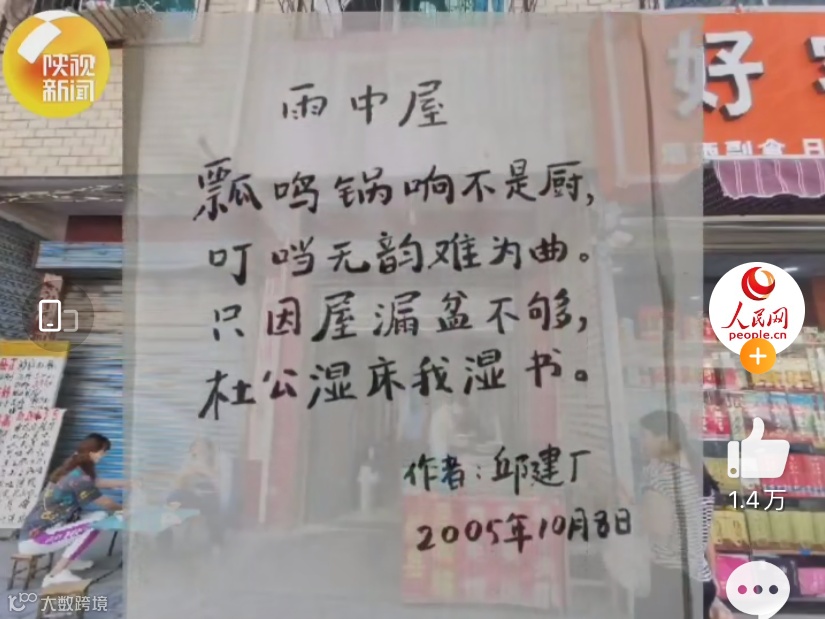 陕视
新闻
好
雨中屋
瓢鸣锅响不是厨,
叮噹无韵难为曲。
只因屋漏盆不够,
杜公湿床我湿书。
作者:邱建厂
2005年10月8日
副食
人民网
people.cn
1.4万
大数跨境